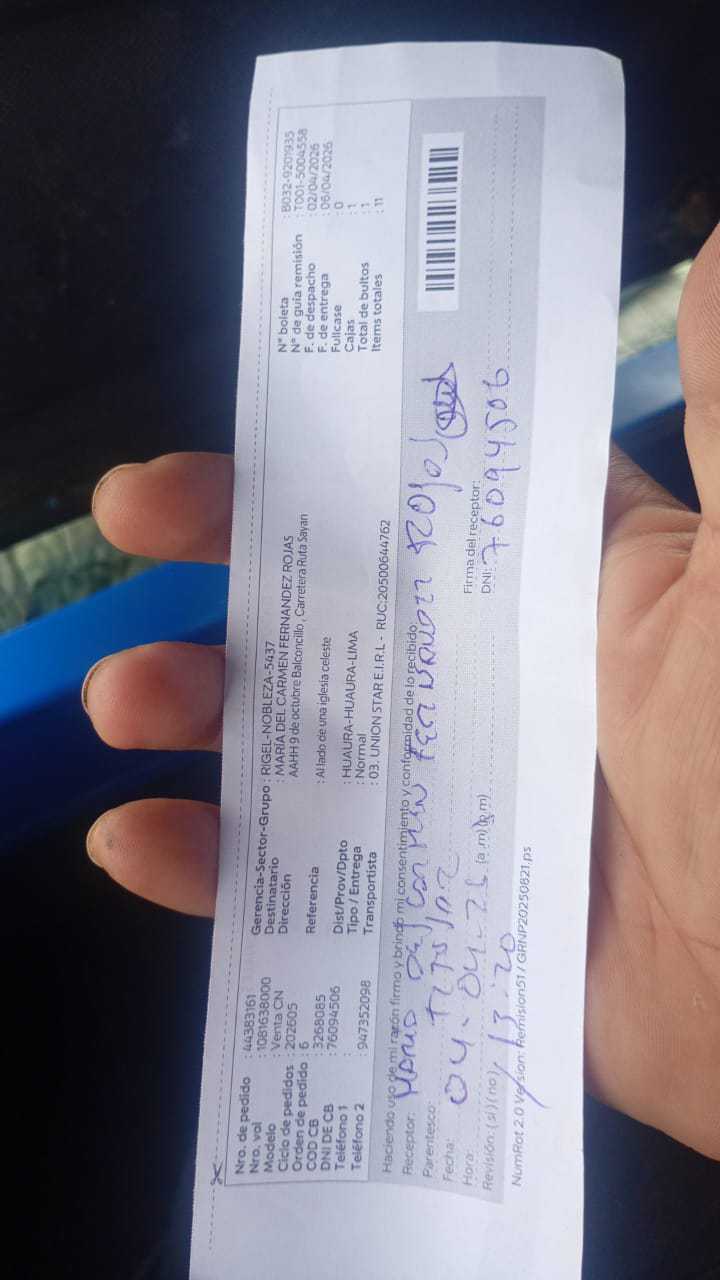 Nro. de pedido : 44383161
Nro. vol : 1081638000
Modelo : Venta CN
Ciclo de pedidos : 202605
Orden de pedido : 6
COD CB : 3268085
DNI DE CB : 76094506
Teléfono 1 :
Teléfono 2 : 947352098
Gerencia-Sector-Grupo : RIGEL-NOBLEZA-5437
Destinatario : MARÍA DEL CARMEN FERNANDEZ ROJAS
Dirección AAHH 9 de octubre Balconcillo , Carretera Ruta Sayan
Referencia : Al lado de una iglesia celeste
Dist/Prov/Dpto : HUAURA-HUAURA-LIMA
Tipo / Entrega : Normal
Transportista : 03. UNION STAR E.I.R.L - RUC:20500644762
N° boleta : B032-9201935
N° de guía remisión : T001-5004558
F. de despacho : 02/04/2026
F. de entrega : 06/04/2026
Fullcase : 0
Cajas : 1
Total de bultos : 1
Items totales : 11
Haciendo uso de mi razón firmo y brindo mi consentimiento y conformidad de lo recibido:
Receptor: Maria del Carmen Fernandez Rojas
Parentesco: Titular
Fecha: 04.04.26
Hora: 13:20 (a.m) (p.m)
Revisión: (si) (no)
Firma del receptor:
DNI: 76094506
NumRot 2.0 Version: Remision51 / GRNP20250821.ps